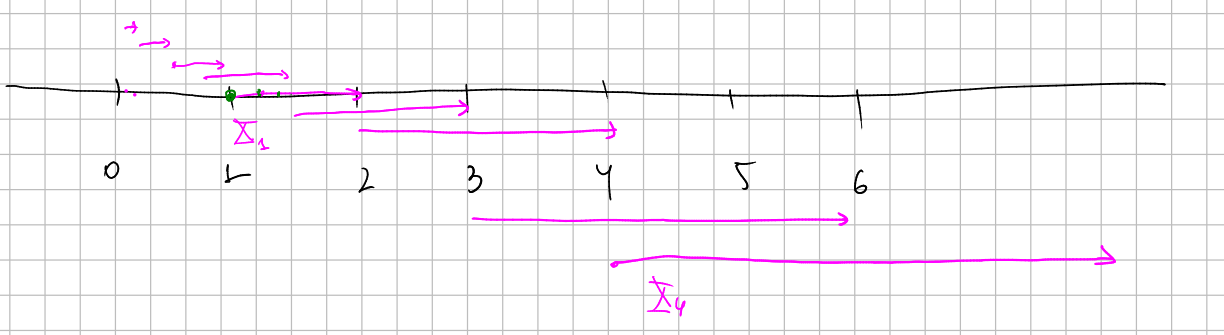 X₁
0 1 2 3 4 5 6
X₄